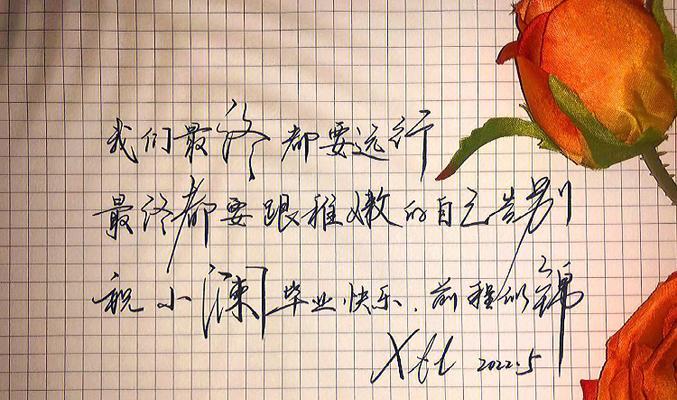 我们最终都要远行
最终都要跟稚嫩的自己告别
祝小澜毕业快乐.前程似锦
2022.5